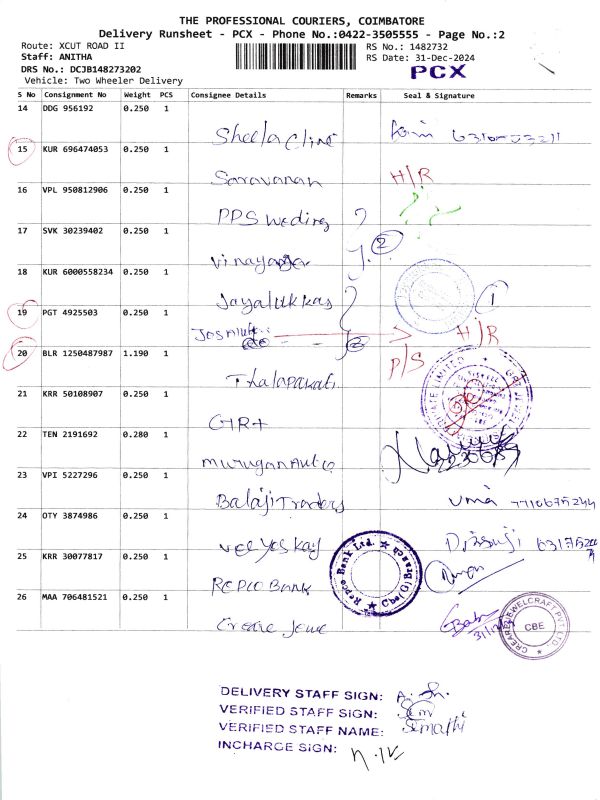 THE PROFESSIONAL COURIERS, COIMBATORE
Delivery Runsheet - PCX - Phone No.:0422-3505555 - Page No.:2
Route: XCUT ROAD II
RS No.: 1482732
Staff: ANITHA
RS Date: 31-Dec-2024
DRS No.: DCJB148273202
PCX
Vehicle: Two Wheeler Delivery
S No Consignment No Weight PCS Consignee Details Remarks Seal & Signature
14 DDG 956192 0.250 1
Sheela Clinic
15 KUR 696474053 0.250 1
Saravanan H/R
16 VPL 950812906 0.250 1
PPS Weding
17 SVK 30239402 0.250 1
2
Vinayager
18 KUR 6000558234 0.250 1
Jayalukkas 1
19 PGT 4925503 0.250 1
H/R
20 BLR 1250487987 1.190 1
P/S
Thalapakati
21 KRR 50108907 0.250 1
GRT
22 TEN 2191692 0.280 1
Murugan Auto
23 VPI 5227296 0.250 1
Balaji Traders Uma
24 OTY 3874986 0.250 1
Veeyes Kay
25 KRR 30077817 0.250 1
Repco Bank Ltd.
REPCO BANK
26 MAA 706481521 0.250 1
CBE
DELIVERY STAFF SIGN:
VERIFIED STAFF SIGN:
VERIFIED STAFF NAME: Semathi
INCHARGE SIGN: